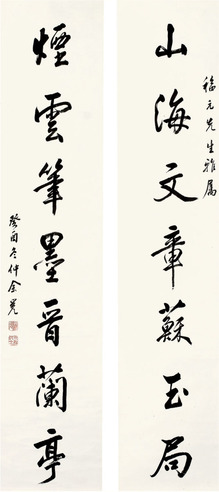 福元先生雅屬
山海文章蘇玉局
煙雲筆墨晉蘭亭
癸酉冬仲余覺